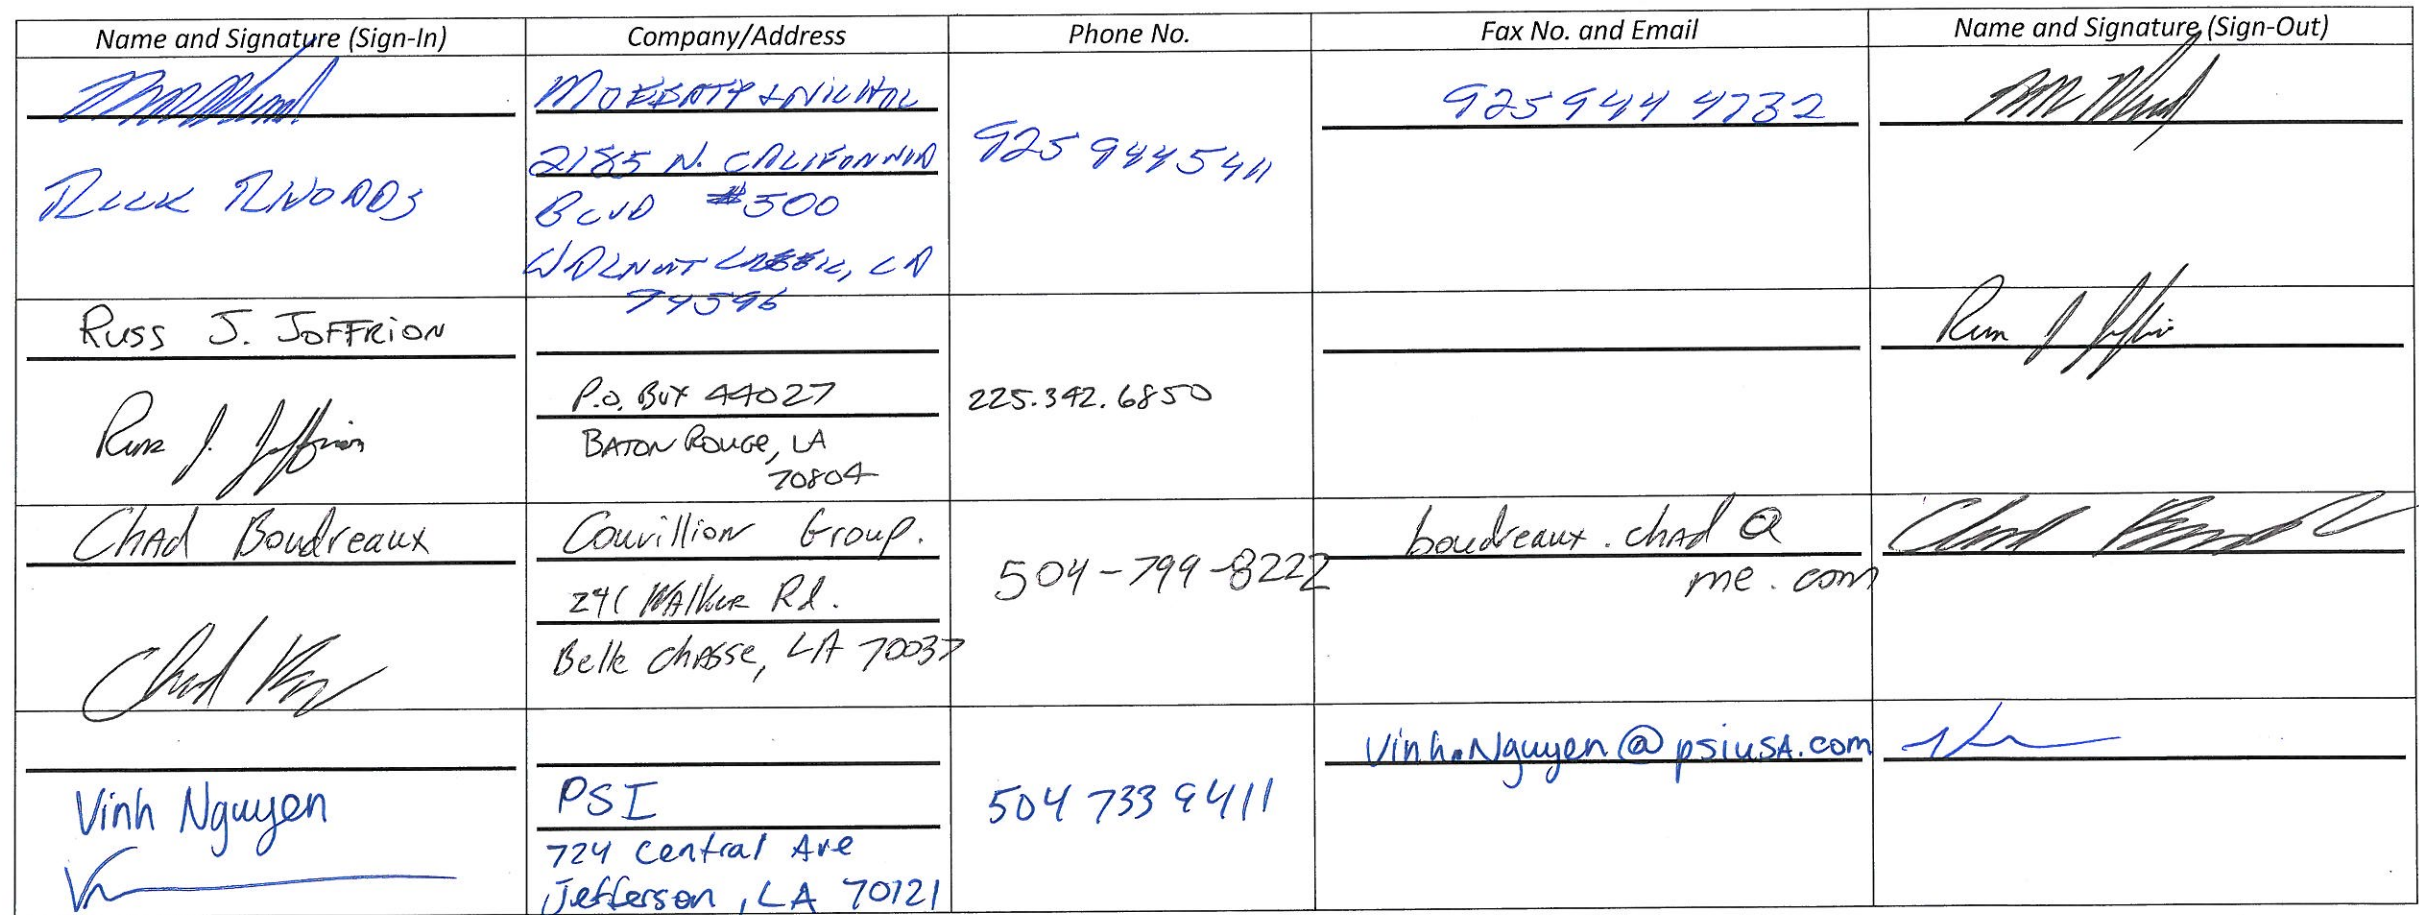 Name and Signature (Sign-In)
Company/Address
Phone No.
Fax No. and Email
Name and Signature (Sign-Out)
MOFFATT & NICHOL
2185 N. CALIFORNIA
BLVD #500
WALNUT CREEK, CA
94596
925 944 5411
925 944 4732
RICK RHOADS
RUSS J. JOFFRION
P.O. Box 44027
BATON ROUGE, LA
70804
225.342.6850
Chad Boudreaux
Couvillion Group.
241 Walker Rd.
Belle Chasse, LA 70037
504-799-8222
boudreaux.chad@
me.com
Vinh Nguyen
PSI
724 Central Ave
Jefferson, LA 70121
504 733 9411
Vinh.Nguyen@psiusA.com